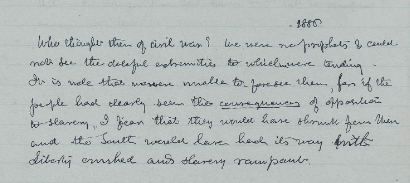 1886
Who thought then of civil war? We were no prophets & could
not see the doleful extremities to which were tending.
It is well that were unable to foresee them, for if the
people had clearly seen the consequences of opposition
to slavery, I fear that they would have shrunk from them
and the South would have had its way with
liberty crushed and slavery rampant.